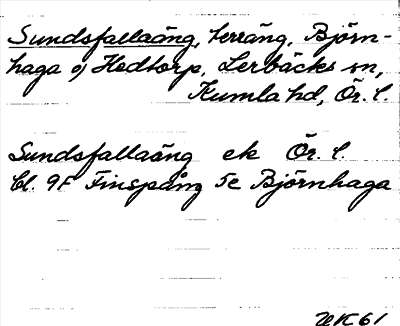 Sundsfallaäng, terräng, Björn-
haga o Hedtorp, Lerbäcks sn,
Kumla hd, Ör. l.
Sundsfallaäng ek Ör. l.
bl. 9F Finspång 5c Björnhaga
UK61